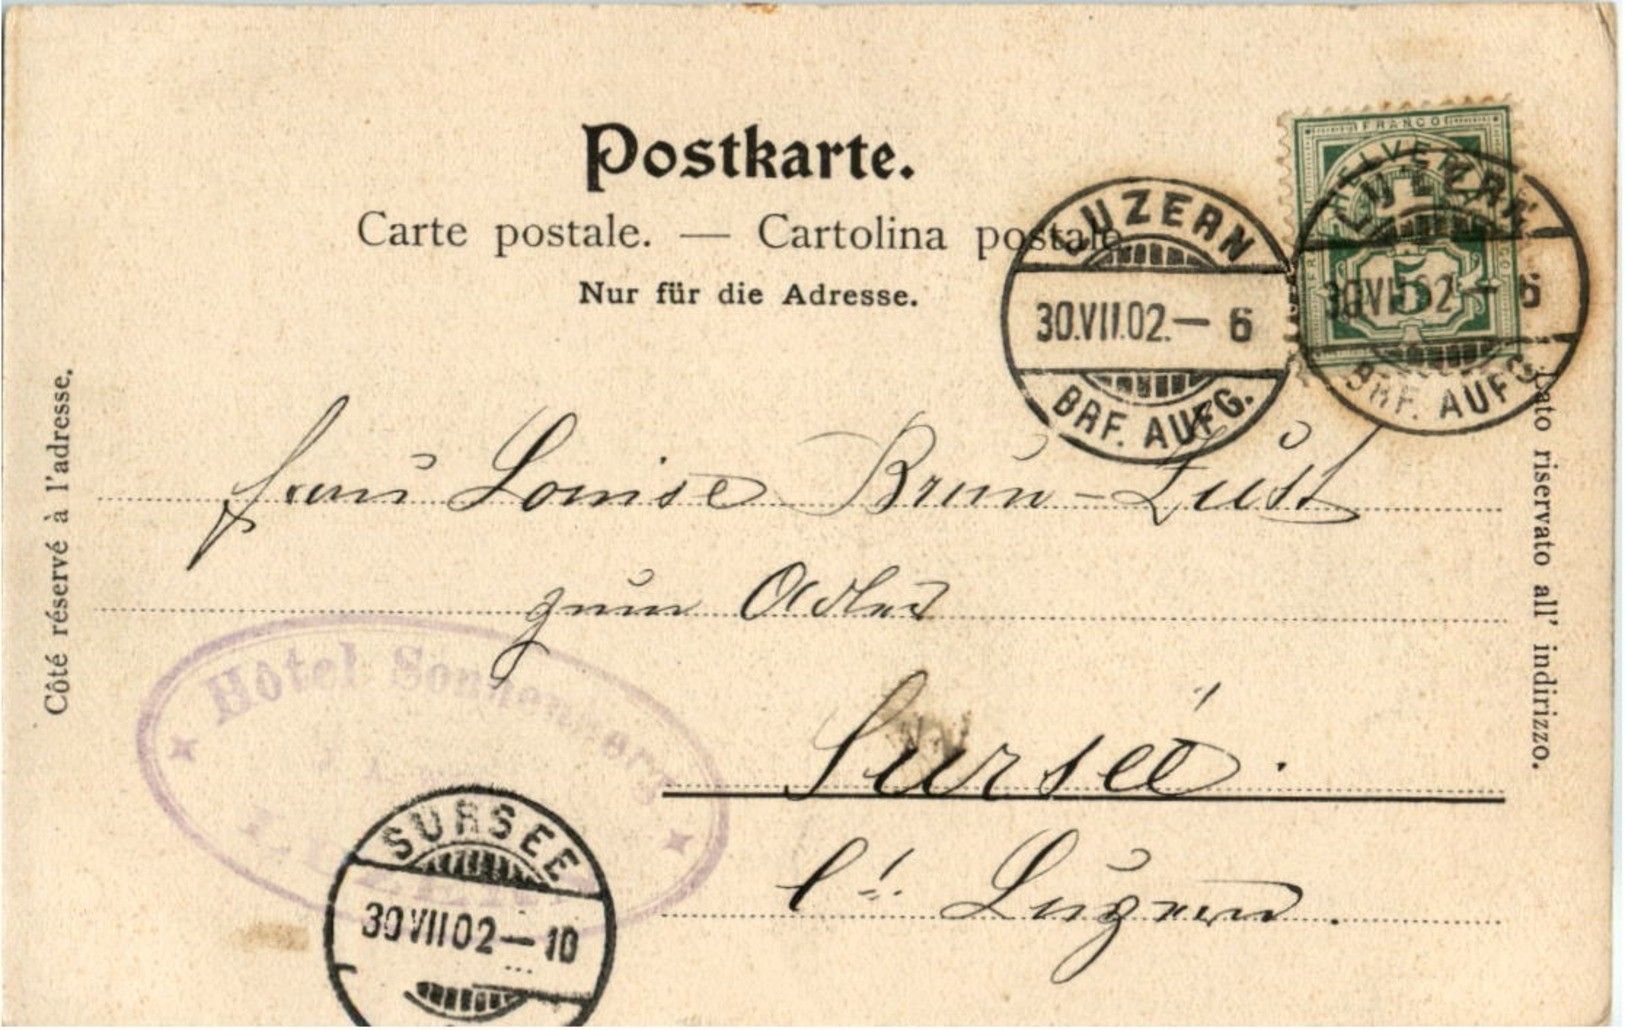 Postkarte.
Carte postale. — Cartolina postale.
Nur für die Adresse.
FRANCO
HELVETIA
5
LUZERN
30.VII.02.— 6
BRF. AUFG.
LUZERN
30.VII.02 — 6
BRF. AUFG.
Côté réservé à l'adresse.
Lato riservato all' indirizzo.
Frau Louise Brun-Züst
zum Adler
Sursee.
Ct. Luzern.
Hôtel Sonnenberg
LUZERN
SURSEE
30 VII 02 — 10